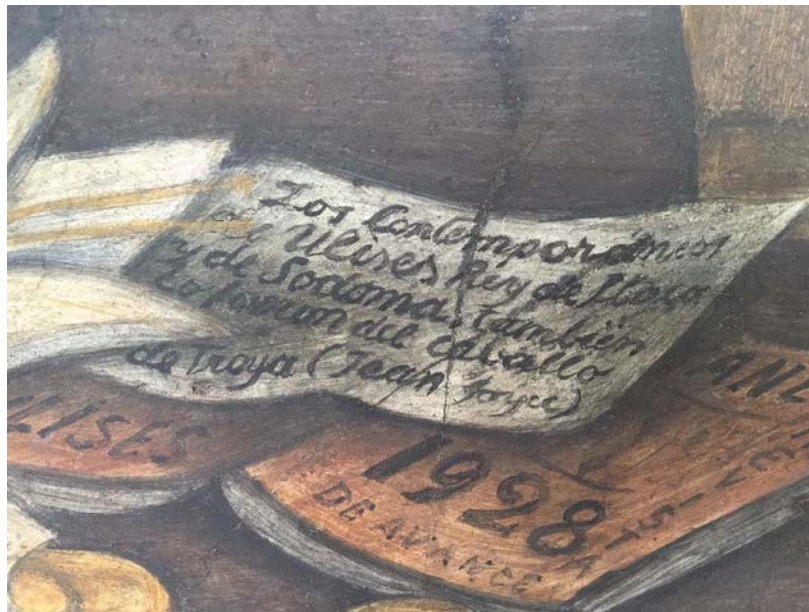 Los Contemporáneos
Ulises Rey de Itaca
y de Sodoma, también
del caballo
de Troya (Jean Joyce)
LISES
1928
DE AVANCE